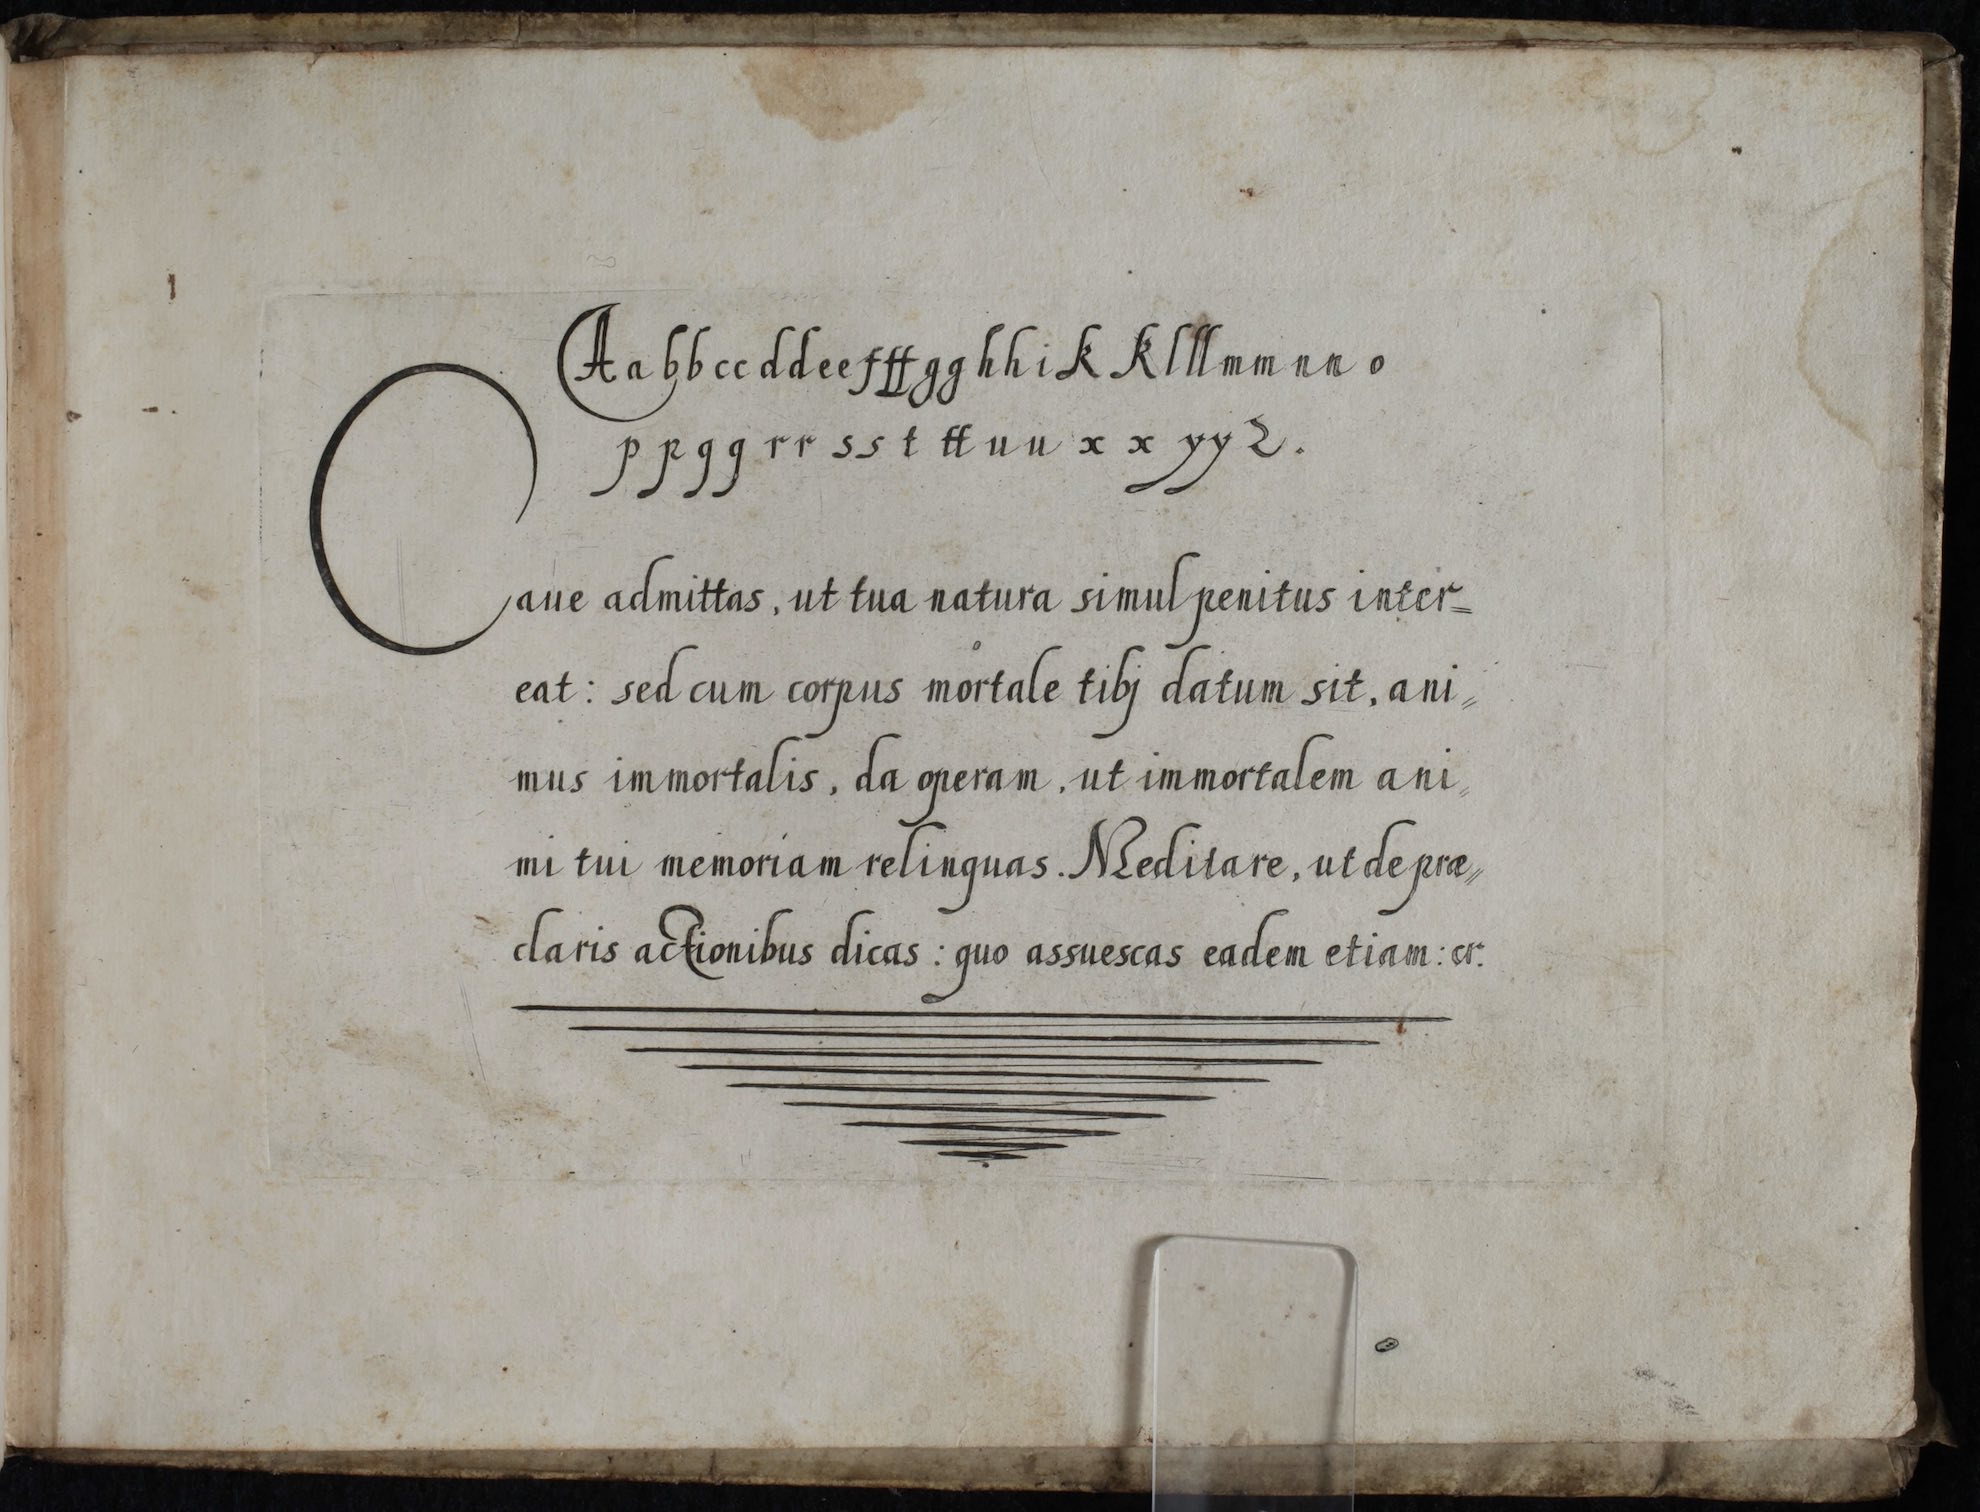 A a b b c c d d e e f ff g g h h i k k l ll m m n n o
p p q q r r s s t tt u u x x y y z.
Caue admittas, ut tua natura simul penitus inter=
eat: sed cum corpus mortale tibj datum sit, ani=
mus immortalis, da operam, ut immortalem ani=
mi tui memoriam relinquas. Meditare, ut de præ=
claris actionibus dicas: quo assuescas eadem etiam: